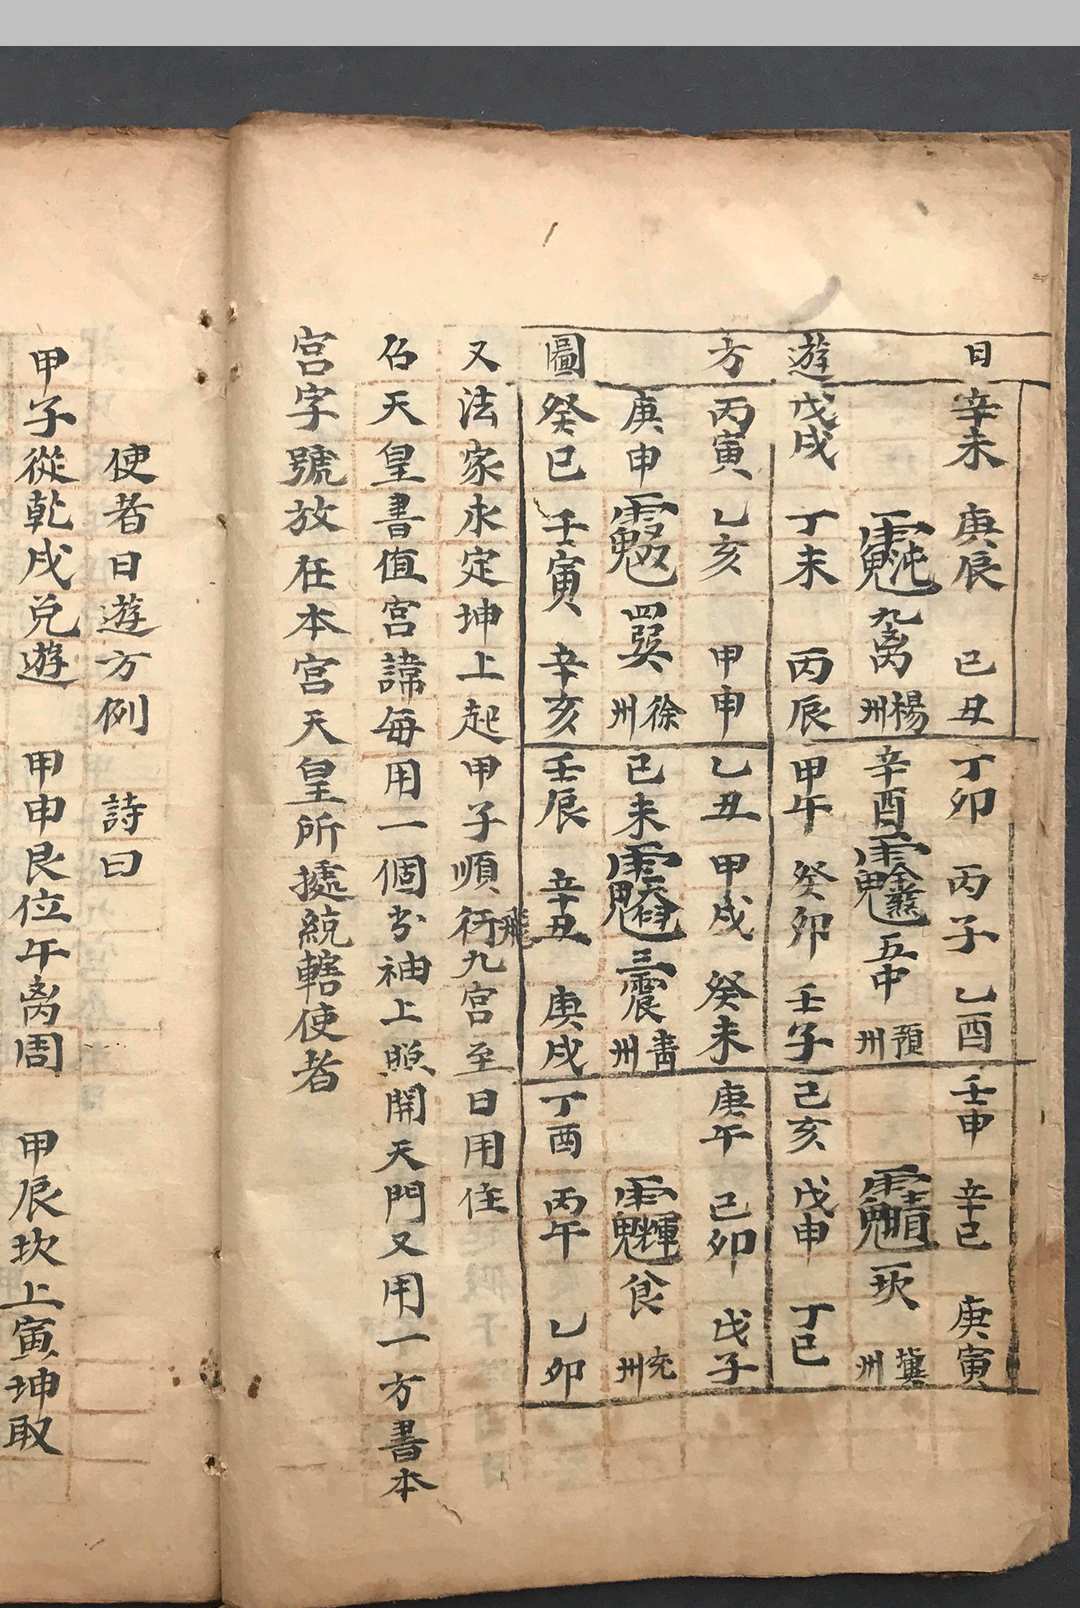 日遊方圖
辛未 庚辰 己丑
九离 楊州
戊戌 丁未 丙辰
丁卯 丙子 乙酉
辛酉 五中 預州
甲午 癸卯 壬子
壬申 辛巳 庚寅
一坎 冀州
己亥 戊申 丁巳
丙寅 乙亥 甲申
庚申 四巽 徐州
癸巳 壬寅 辛亥
乙丑 甲戌 癸未
己未 三震 青州
壬辰 辛丑 庚戌
庚午 己卯 戊子
州
丁酉 丙午 乙卯
又法家永定坤上起甲子順行飛九宫至日用住
召天皇書值宫諱每用一個於袖上照開天門又用一方書本
宫字號放在本宫天皇所㨿統轄使者
使者日遊方例 詩曰
甲子從乾戌兌遊 甲申艮位午离周 甲辰坎上寅坤取